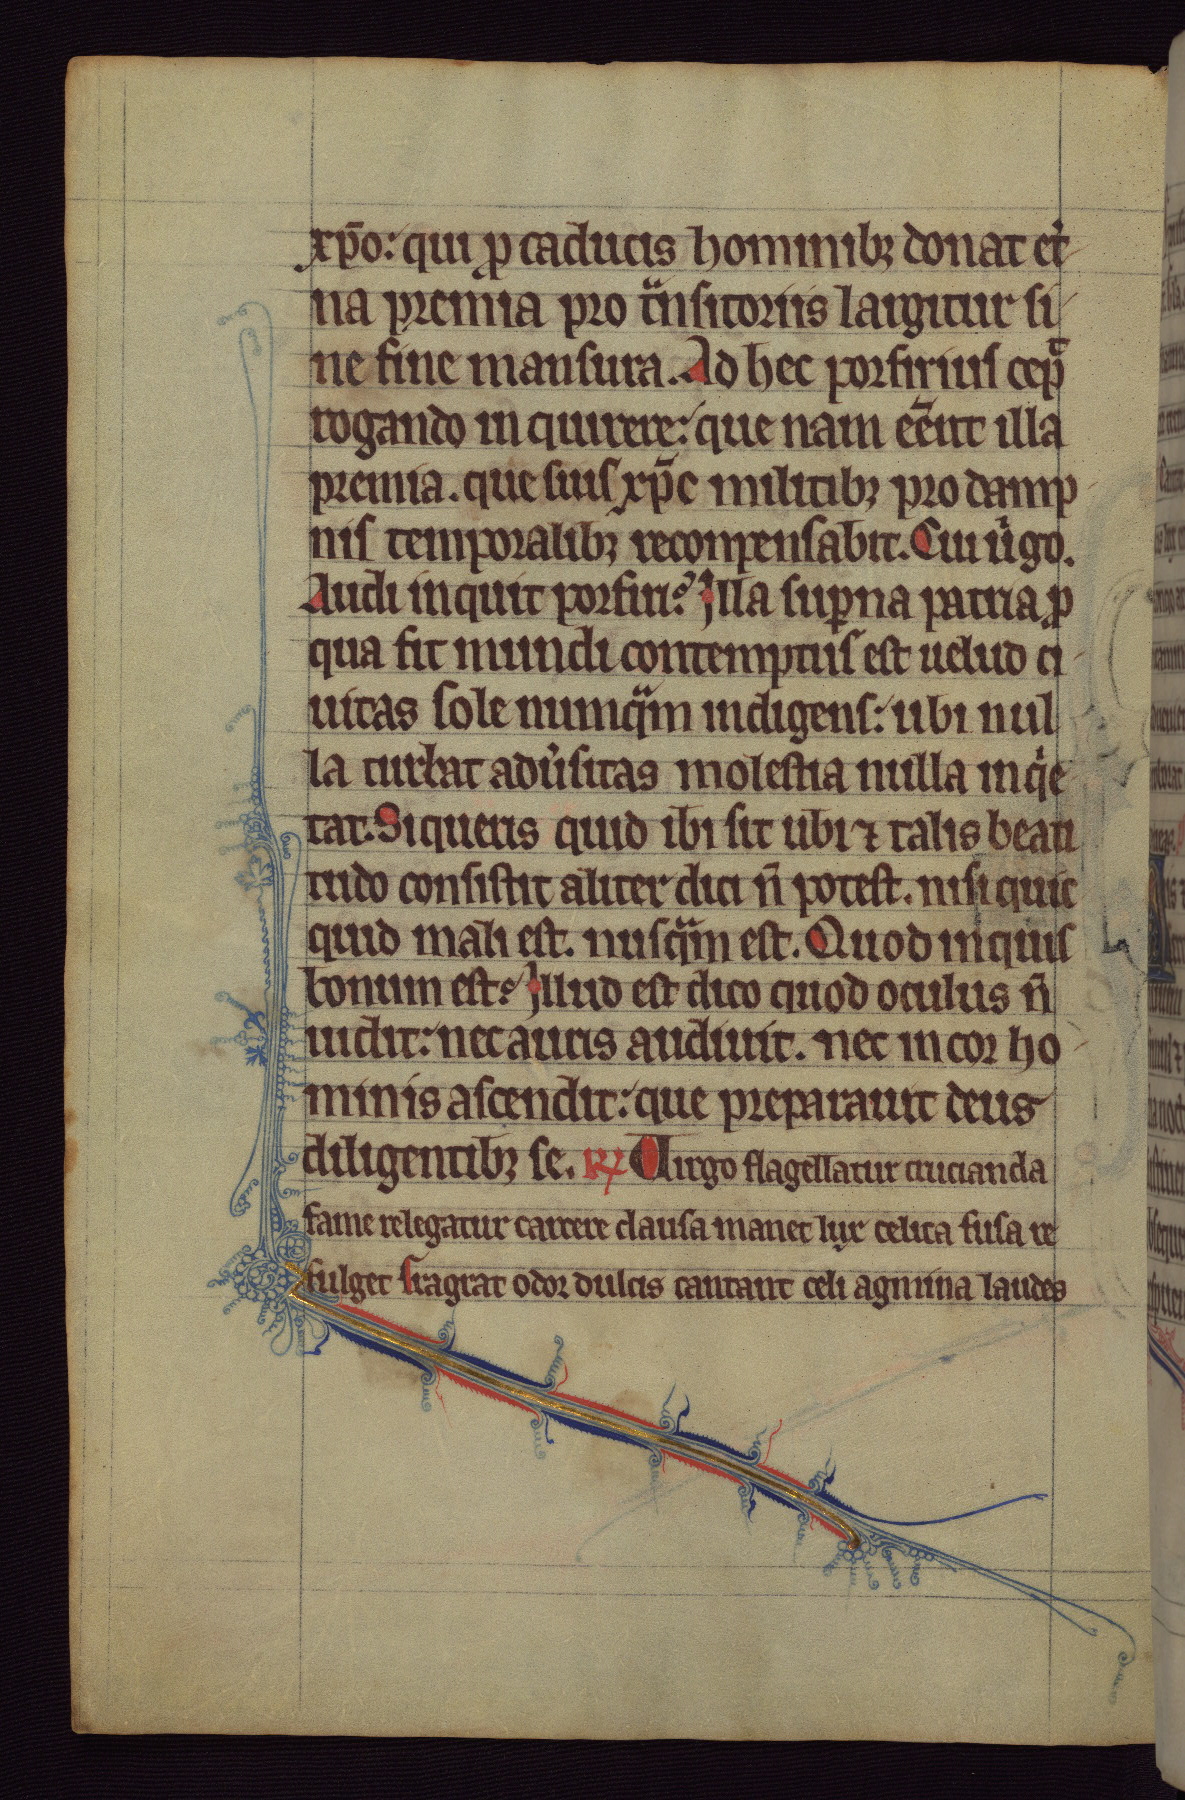 xp̄o: qui ꝓ caducis hominibꝫ donat et͛
na premia pro tͣnsitoriis largitur si
ne fine mansura. Ad hec porfirius cep̄
rogando inquirere: que nam eēnt illa
premia. que suis xp̄c militibꝫ pro damp
nis temporalibꝫ recompensabit. Cui uͥgo.
Audi inquit porfiri. Illa suꝑna patria ꝓ
qua fit mundi contemptus est uelud ci
uitas sole numqͣm indigens: ubi nul
la turbat adu͛sitas molestia nulla inqͥe
tat. Si queris quid ibi sit ubi ⁊ talis beati
tudo consistit aliter dici n̄ potest. nisi quic
quid mali est. nusqͣm est. Quod inquis
bonum est. Illud est dico quod oculus n̄
uidit: nec auris audiuit. nec in cor ho
minis ascendit: que preparauit deus
diligentibꝫ se. R̷ Virgo flagellatur crucianda
fame relegatur carcere clausa manet lux celica fusa re
fulget fragrat odor dulcis cantant celi agmina laudes